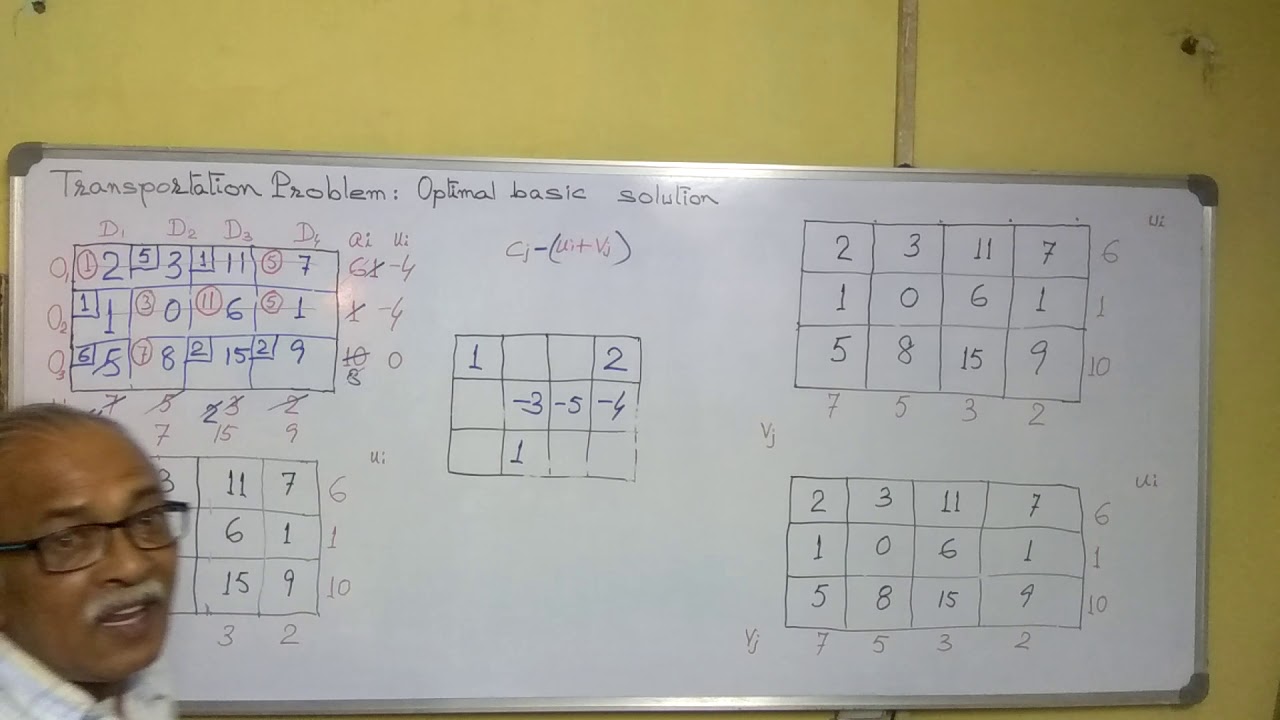 Transportation Problem: Optimal basic solution
D1 D2 D3 D4 ai ui
O1 1 2 5 3 1 11 5 7 6 1 -4
O2 1 1 3 0 11 6 5 1 1 -4
O3 6 5 7 8 2 15 2 9 10 0
8
7 5 2 3 2
7 15 9
Cj-(ui+vj)
1 2
-3 -5 -4
1
ui
3 11 7 6
6 1 1
15 9 10
3 2
ui
2 3 11 7 6
1 0 6 1 1
5 8 15 9 10
Vj 7 5 3 2
ui
2 3 11 7 6
1 0 6 1 1
5 8 15 9 10
Vj 7 5 3 2